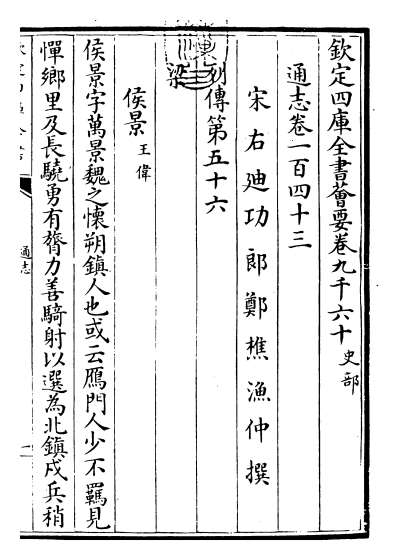 欽定四庫全書薈要卷九千六十 史部
通志卷一百四十三
宋右迪功郎鄭樵漁仲撰
列傳第五十六
梁
侯景 王偉
侯景字萬景魏之懷朔鎮人也或云鴈門人少不羈見
憚鄉里及長驍勇有膂力善騎射以選為北鎮戍兵稍
通志